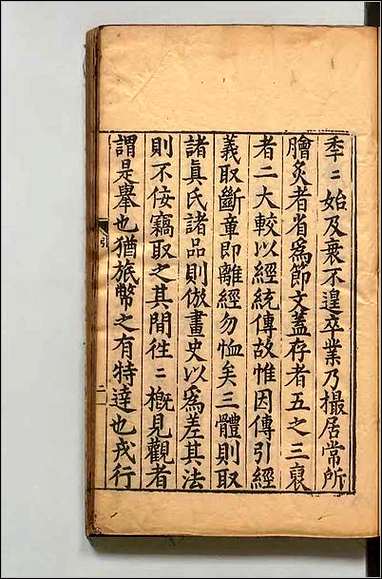 季〻始及衰不遑卒業乃撮居常所
膾炙者省爲節文蓋存者五之三衰
者二大較以經統傳故惟因傳引經
義取斷章即離經勿恤矣三體則取
諸真氏諸品則倣畫史以爲差其法
則不佞竊取之其間徃〻槪見觀者
謂是擧也猶旅幣之有特達也戎行
引
二